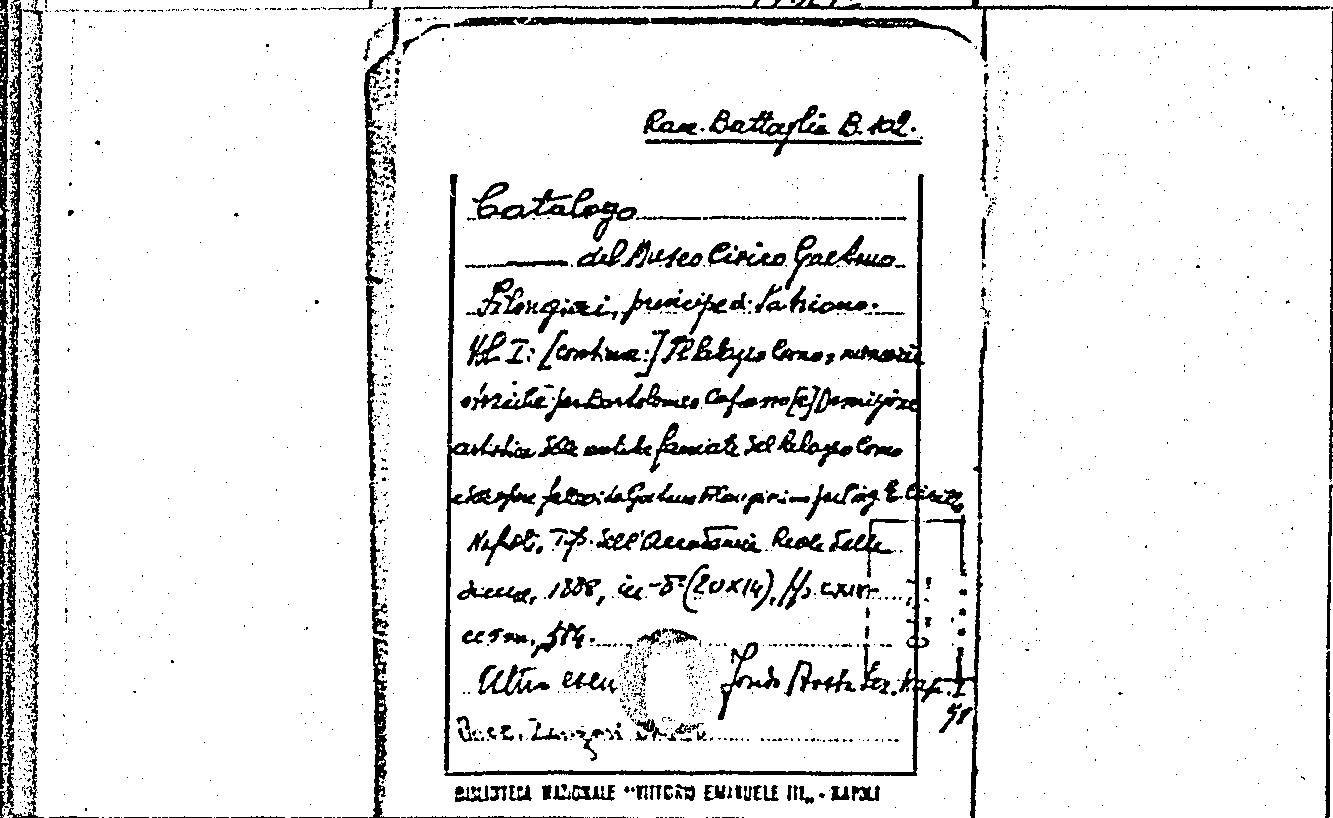 Racc. Battaglia B. 102.
Catalogo
del Museo Civico Gaetano
Filangieri, principe di Satriano.
Vol. I: [contiene:] Il Palazzo Como, memoria
storica per Bartolomeo Capasso [e] Descrizione
artistica delle antiche facciate del Palazzo Como
Gaetano Filangieri
Napoli, Tip. dell'Accademia Reale delle
Scienze, 1888, in-8° (20x14),
584.
Altro esem Fondo
Racc.
BIBLIOTECA NAZIONALE "VITTORIO EMANUELE III„ - NAPOLI